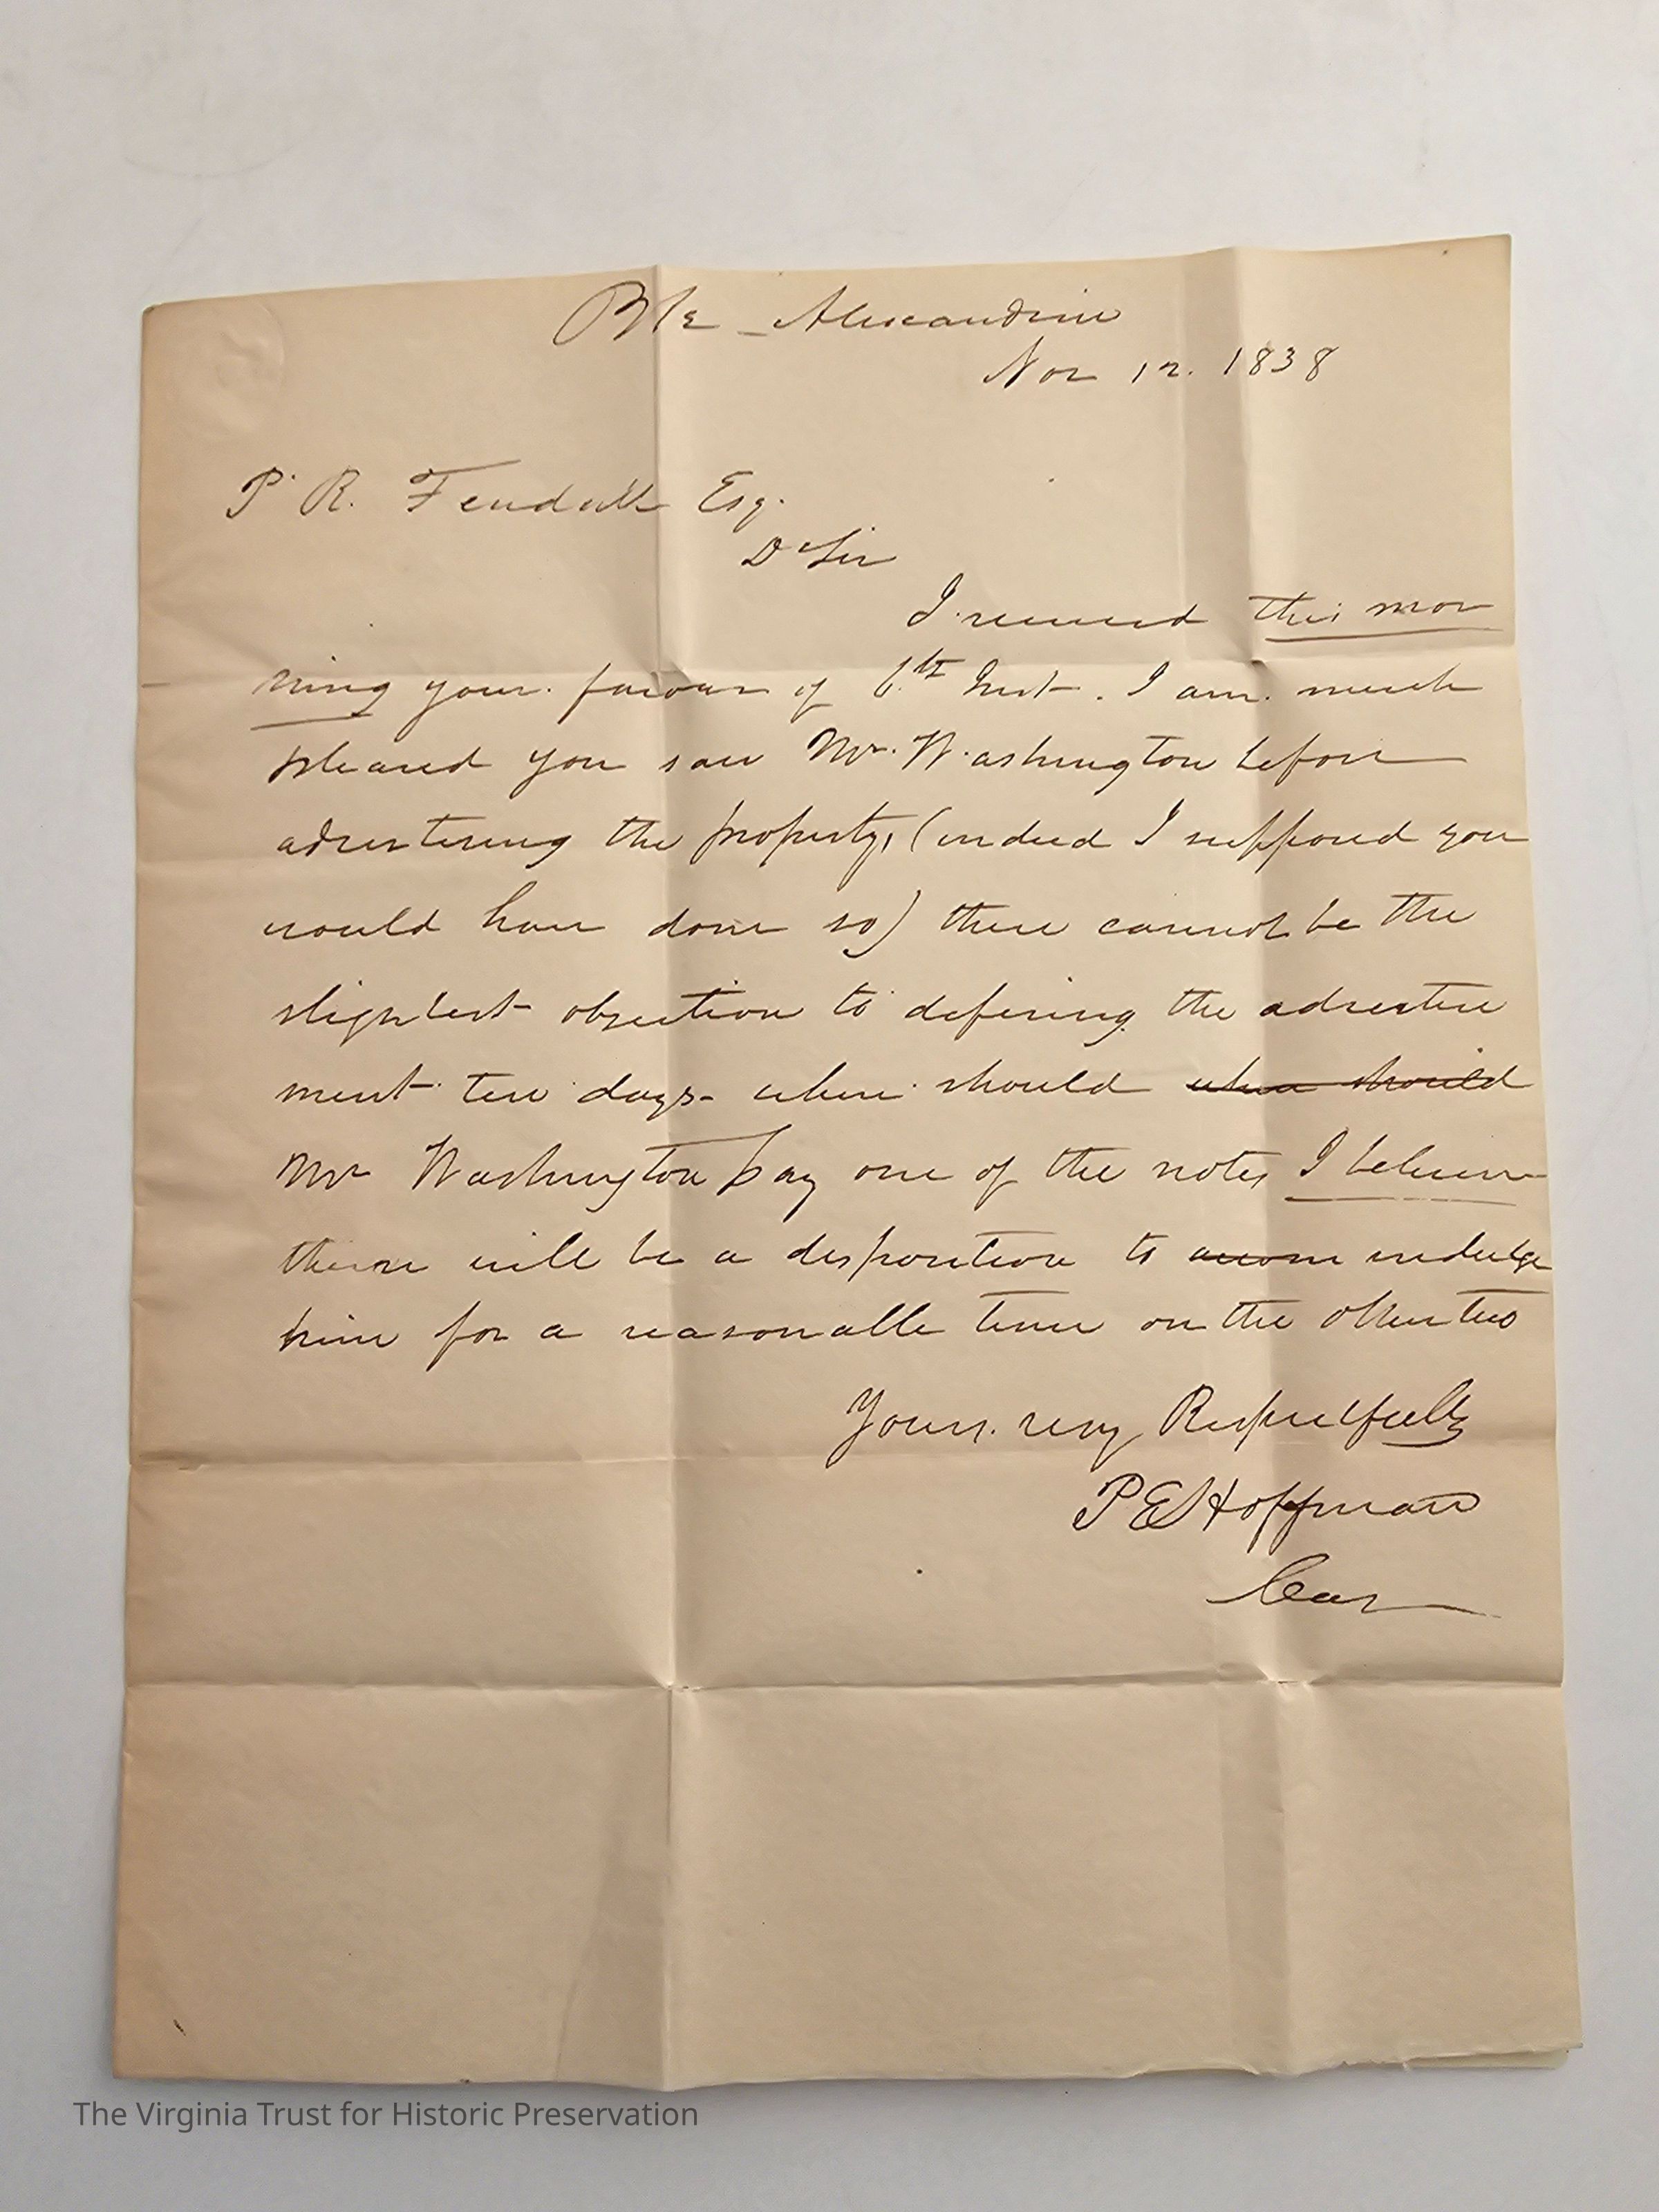 Alexandria
Nov 12. 1838
P. R. Fendall Esq.
D Sir
I received this mor
ning your favour of 6.th Inst. I am much
pleased you saw Mr. Washington before
advertising the property, (indeed I supposed you
would have done so) there cannot be the
slightest objection to defering the advertise
ment ten days - when should when should
Mr Washington pay one of the notes I believe
there will be a disposition to accom indulge
him for a reasonable time on the other two
Yours very Respectfully
P E Hoffman
Cas
The Virginia Trust for Historic Preservation